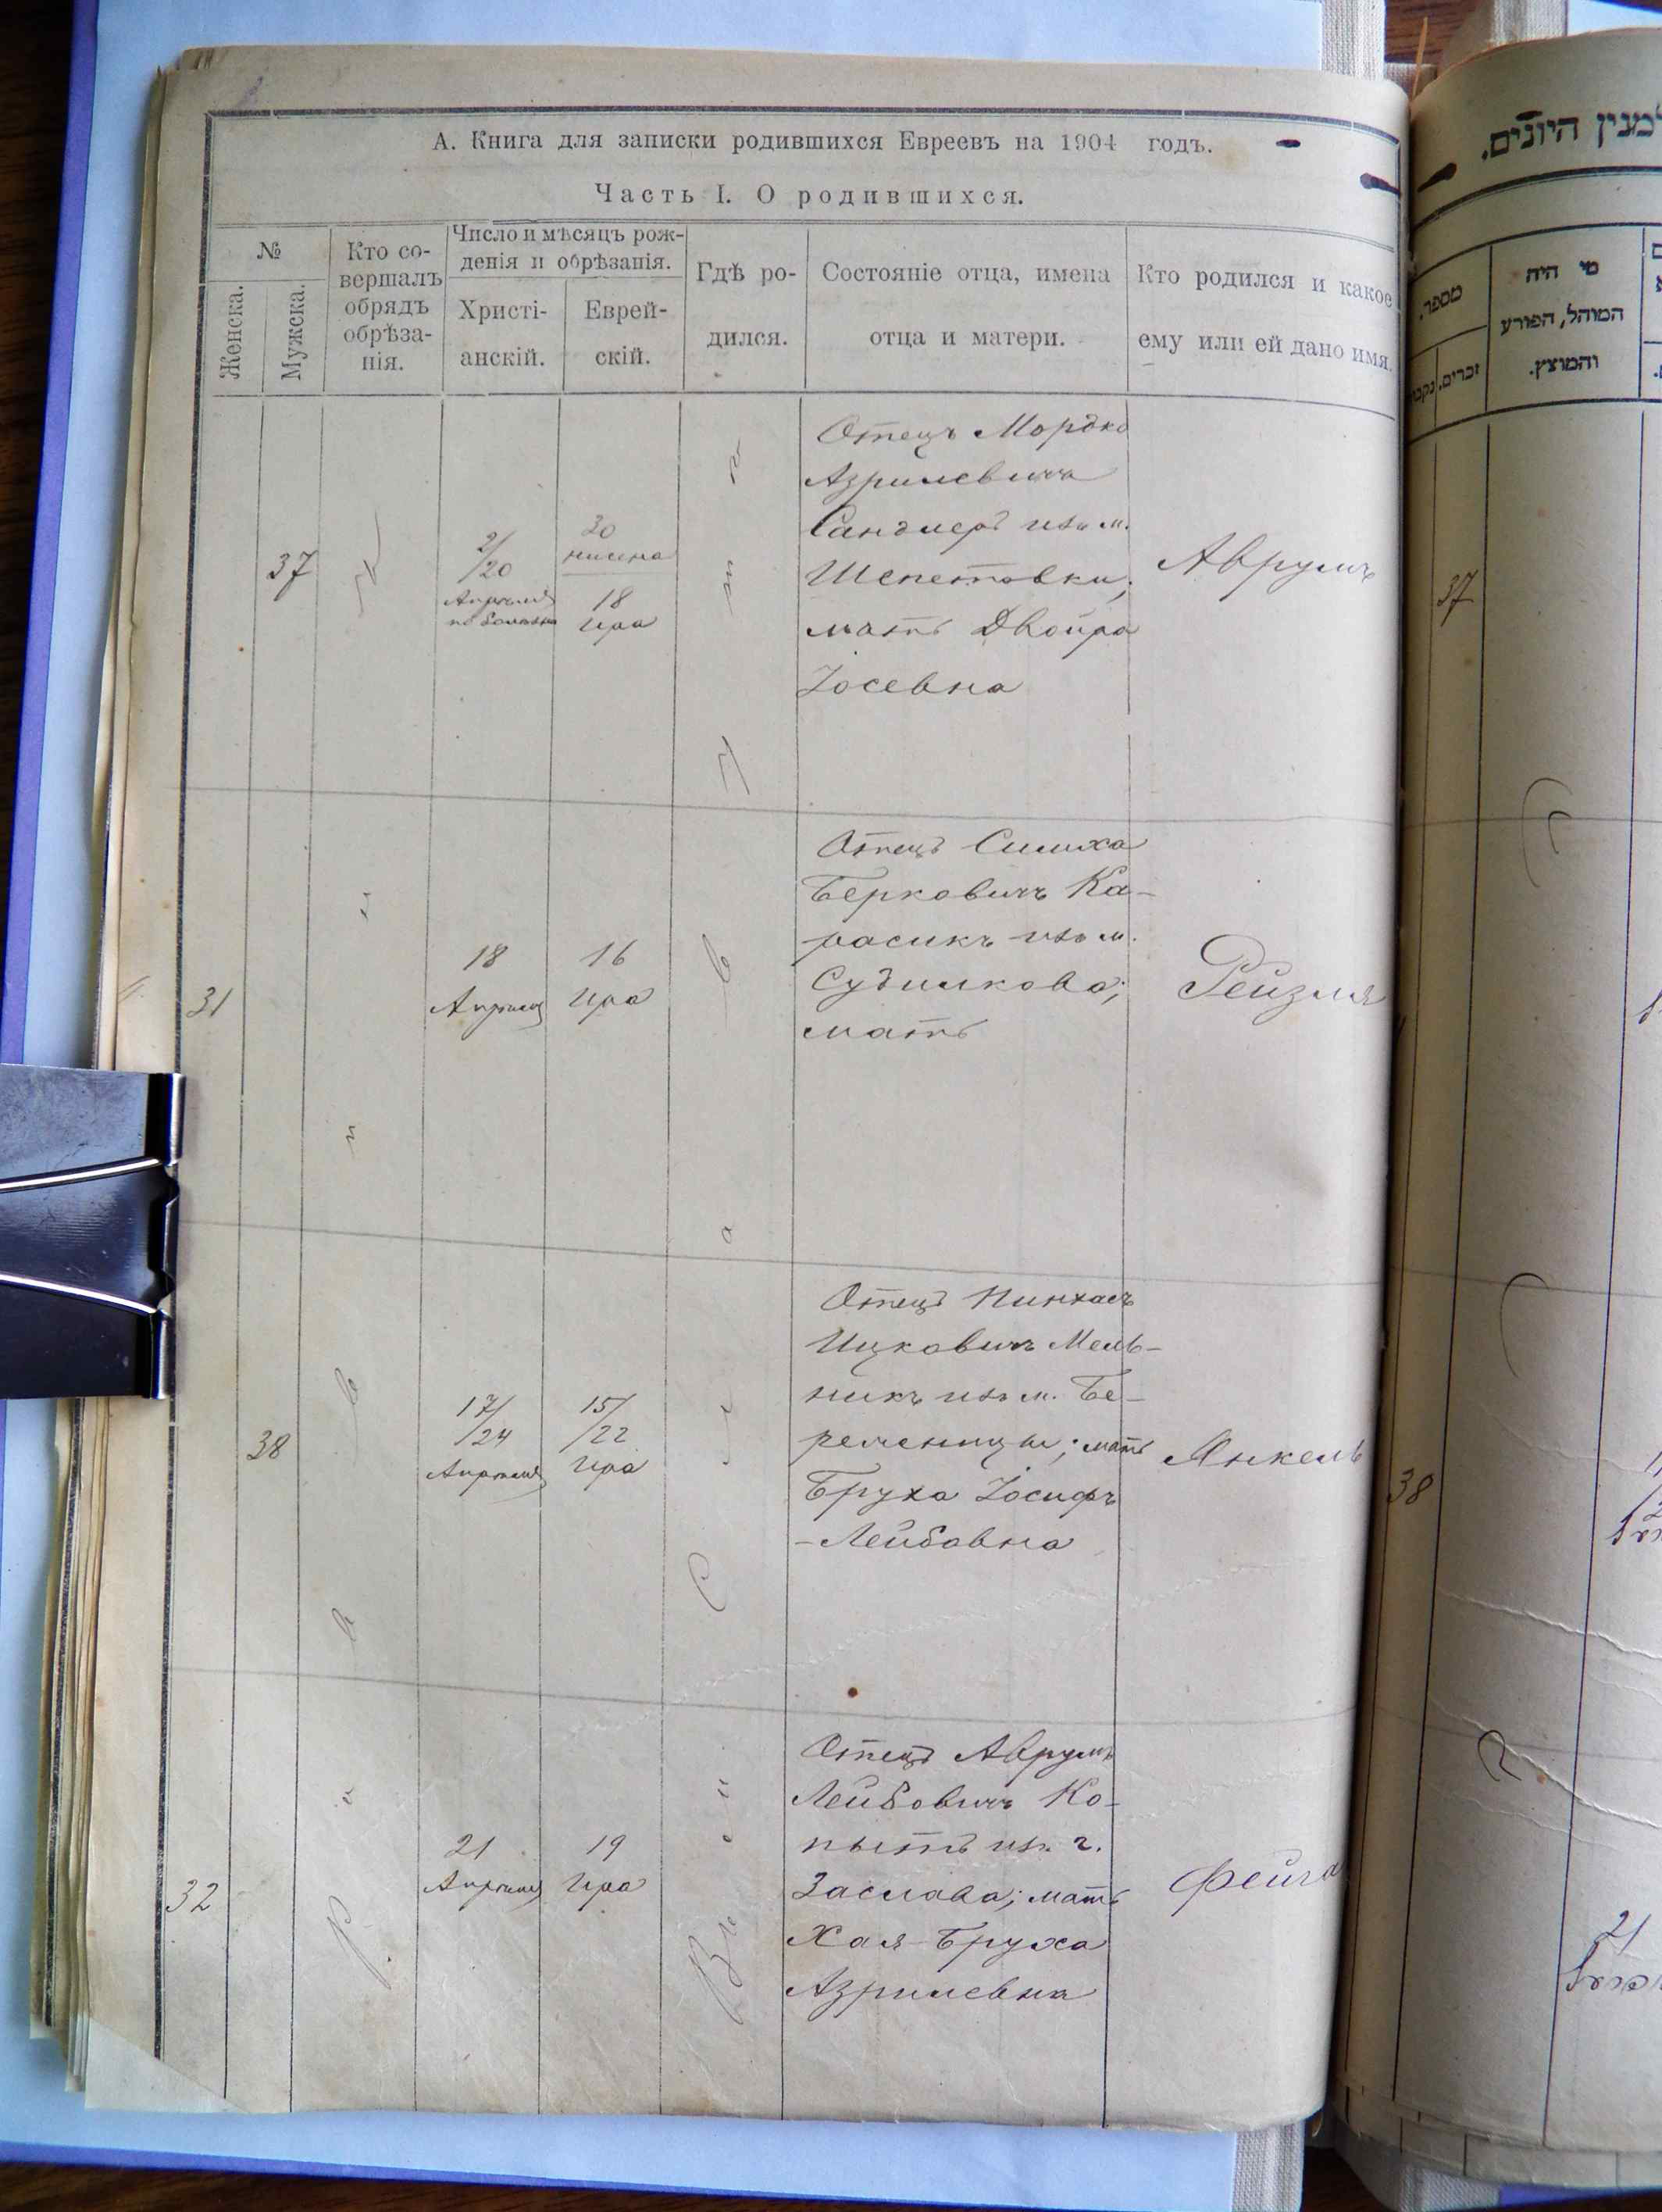 А. Книга для записки родившихся Евреевъ на 1904 годъ.
Часть I. О родившихся.
№
Женска.
Мужска.
Кто со-
вершалъ
обрядъ
обрѣза-
нія.
Число и мѣсяцъ рож-
денія и обрѣзанія.
Христі-
анскій.
Еврей-
скій.
Гдѣ ро-
дился.
Состояніе отца, имена
отца и матери.
Кто родился и какое
ему или ей дано имя.
37
2/
/20
Апрѣля
по болѣзни
30
нисена
18
Ира
Отецъ Мордко
Азрилевичъ
Сандлеръ изъ м.
Шепетовки;
мать Двойра
Іосевна
Аврумъ
31
18
Апрѣля
16
Ира
Отецъ Симха
Берковичъ Ка-
расикъ изъ м.
Судилкова;
мать
Рейзля
38
17/
/24
Апрѣля
15/
/22
Ира
Отецъ Пинхасъ
Ицковичъ Мель-
никъ изъ м. Бе-
мать
Бруха Іосифъ
-Лейбовна
Янкель
32
21
Апрѣля
19
Ира
Отецъ Аврумъ
Лейбовичъ Ко-
пытъ изъ г.
Заслава; мать
Хая-Бруха
Азрилевна
Фейга
Раввинъ
въ Славутѣ
למנין היונים.
מספר.
זכרים.
מי היה
המוהל, הפורע
והמוצץ.
37
38
21